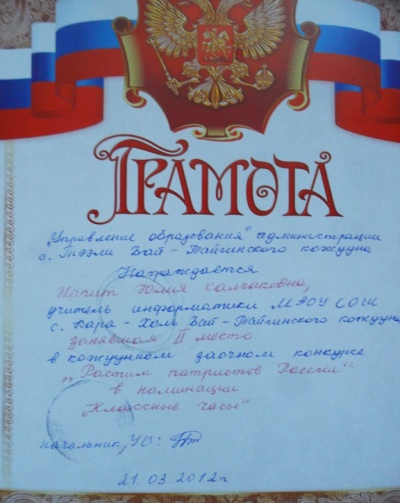 ГРАМОТА
„Управление образования" администрации
с. Тээли Бай-Тайгинского кожууна
Награждается
Иргит Юлия Салчаковна,
учитель информатики МБОУ СОШ
с. Кара-Холь Бай-Тайгинского кожууна
занявшая II место
в кожуунном заочном конкурсе
„Растим патриотов России"
в номинации
„Классные часы"
Начальник УО:
21.03.2012г